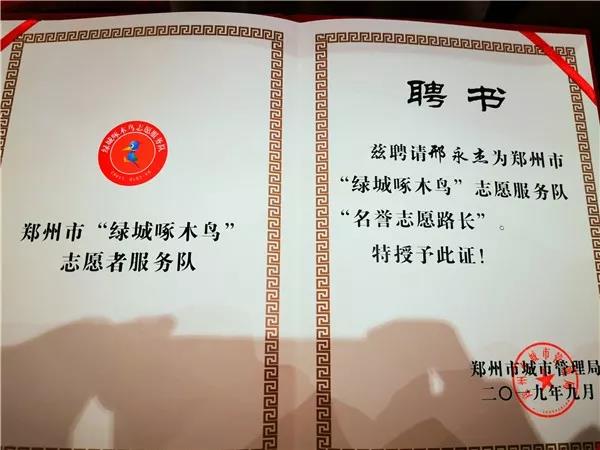 绿城啄木鸟志愿服务队
郑州市“绿城啄木鸟”
志愿者服务队
聘书
兹聘请邢永杰为郑州市
“绿城啄木鸟”志愿服务队
“名誉志愿路长”。
特授予此证！
郑州市城市管理局
二〇一九年九月